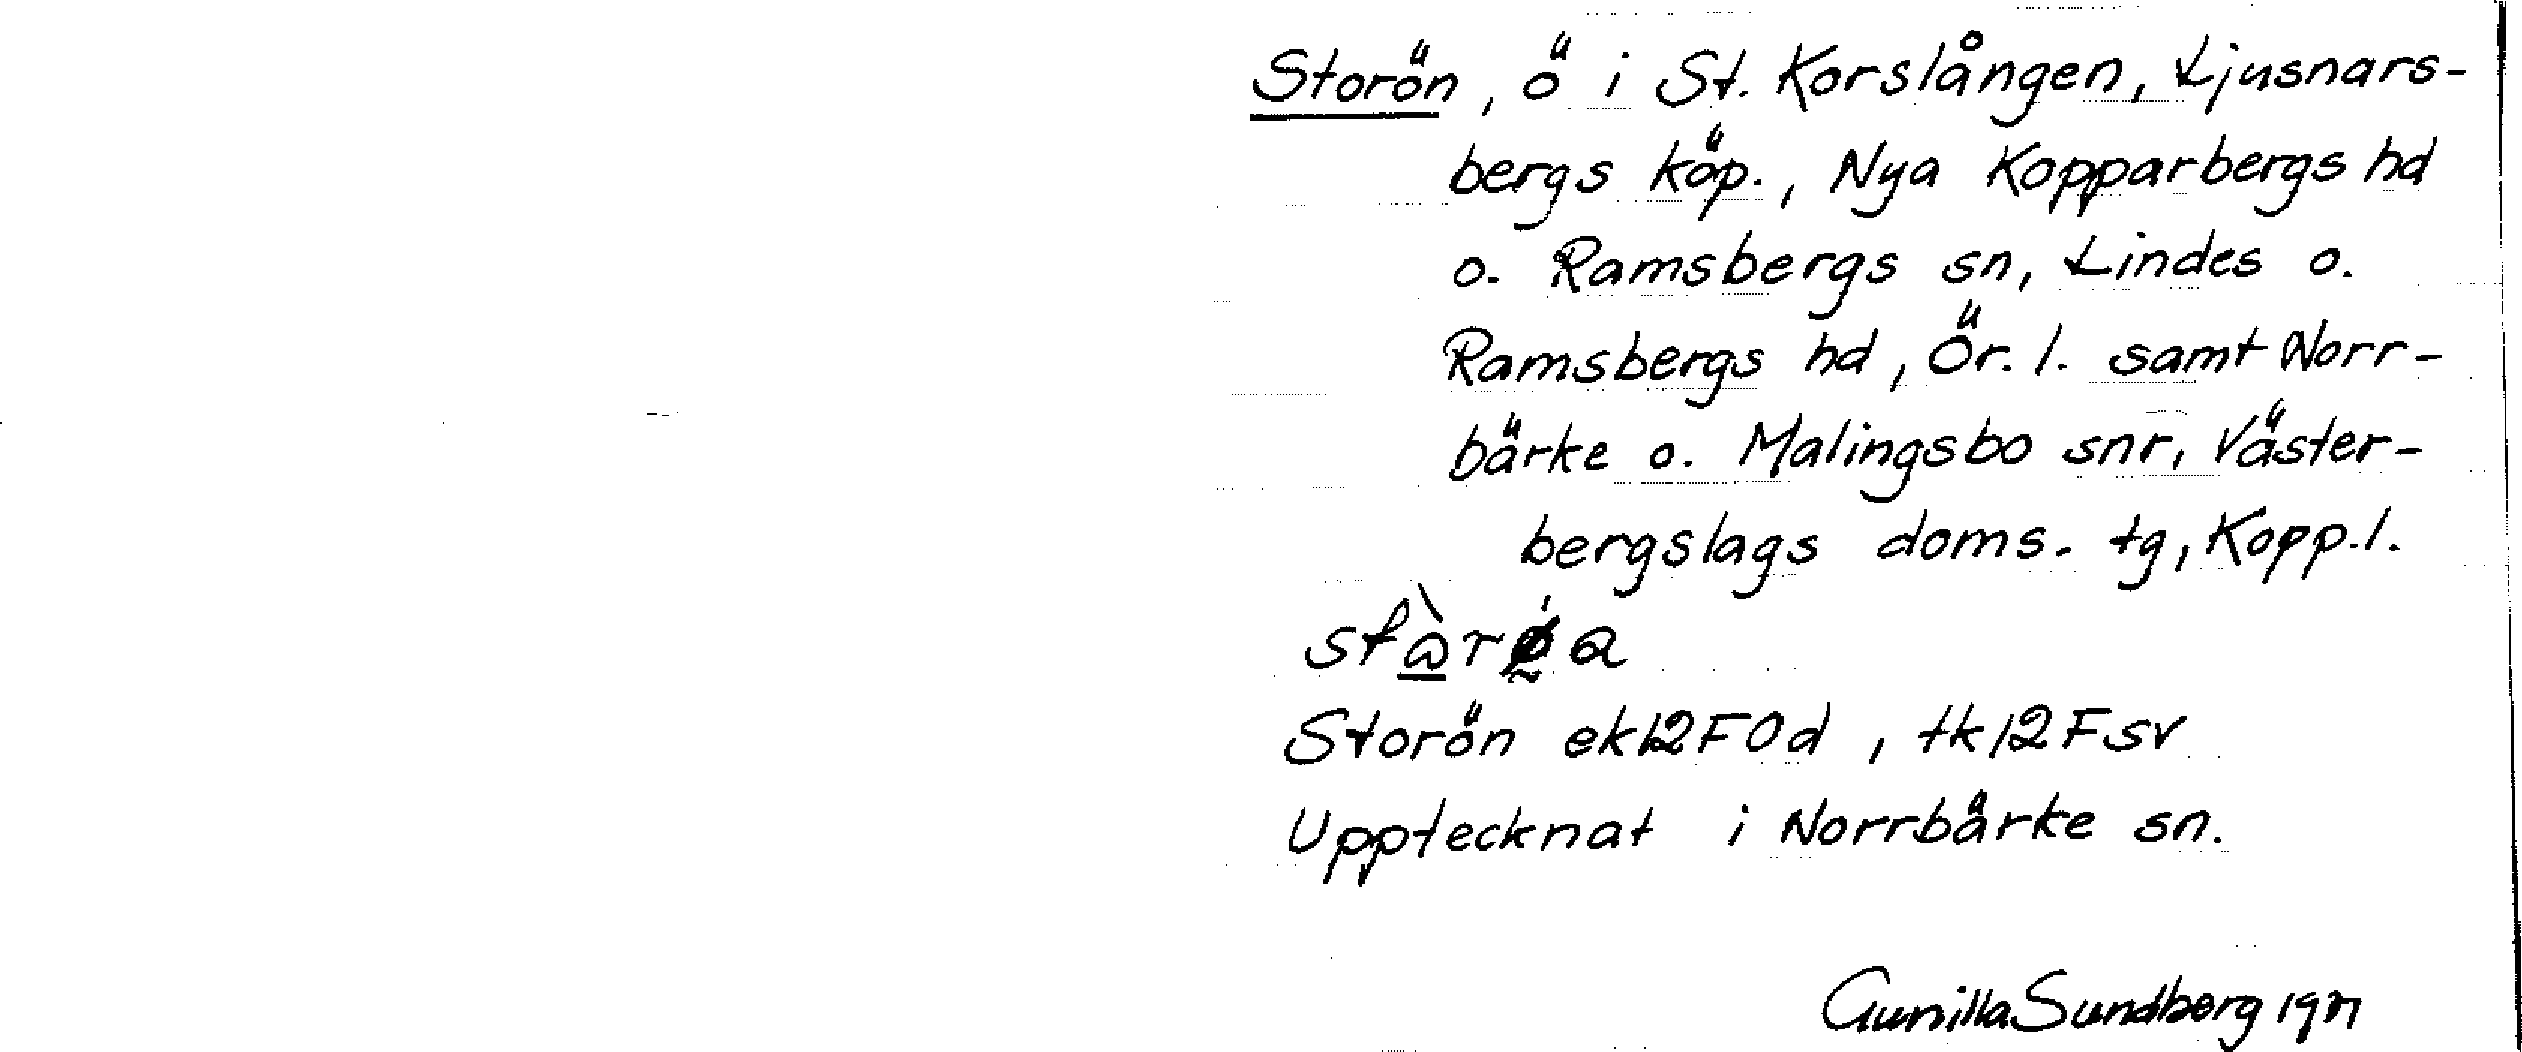 Storön, ö i St. Korslången, Ljusnars-
bergs köp., Nya Kopparbergs hd
o. Ramsbergs sn, Lindes o.
Ramsbergs hd, Ör. l. samt Norr-
bärke o. Malingsbo snr, Väster-
bergslags doms. tg, Kopp. l.
Storön ek12F0d, tk12Fsv
Upptecknat i Norrbärke sn.
Gunilla Sundberg